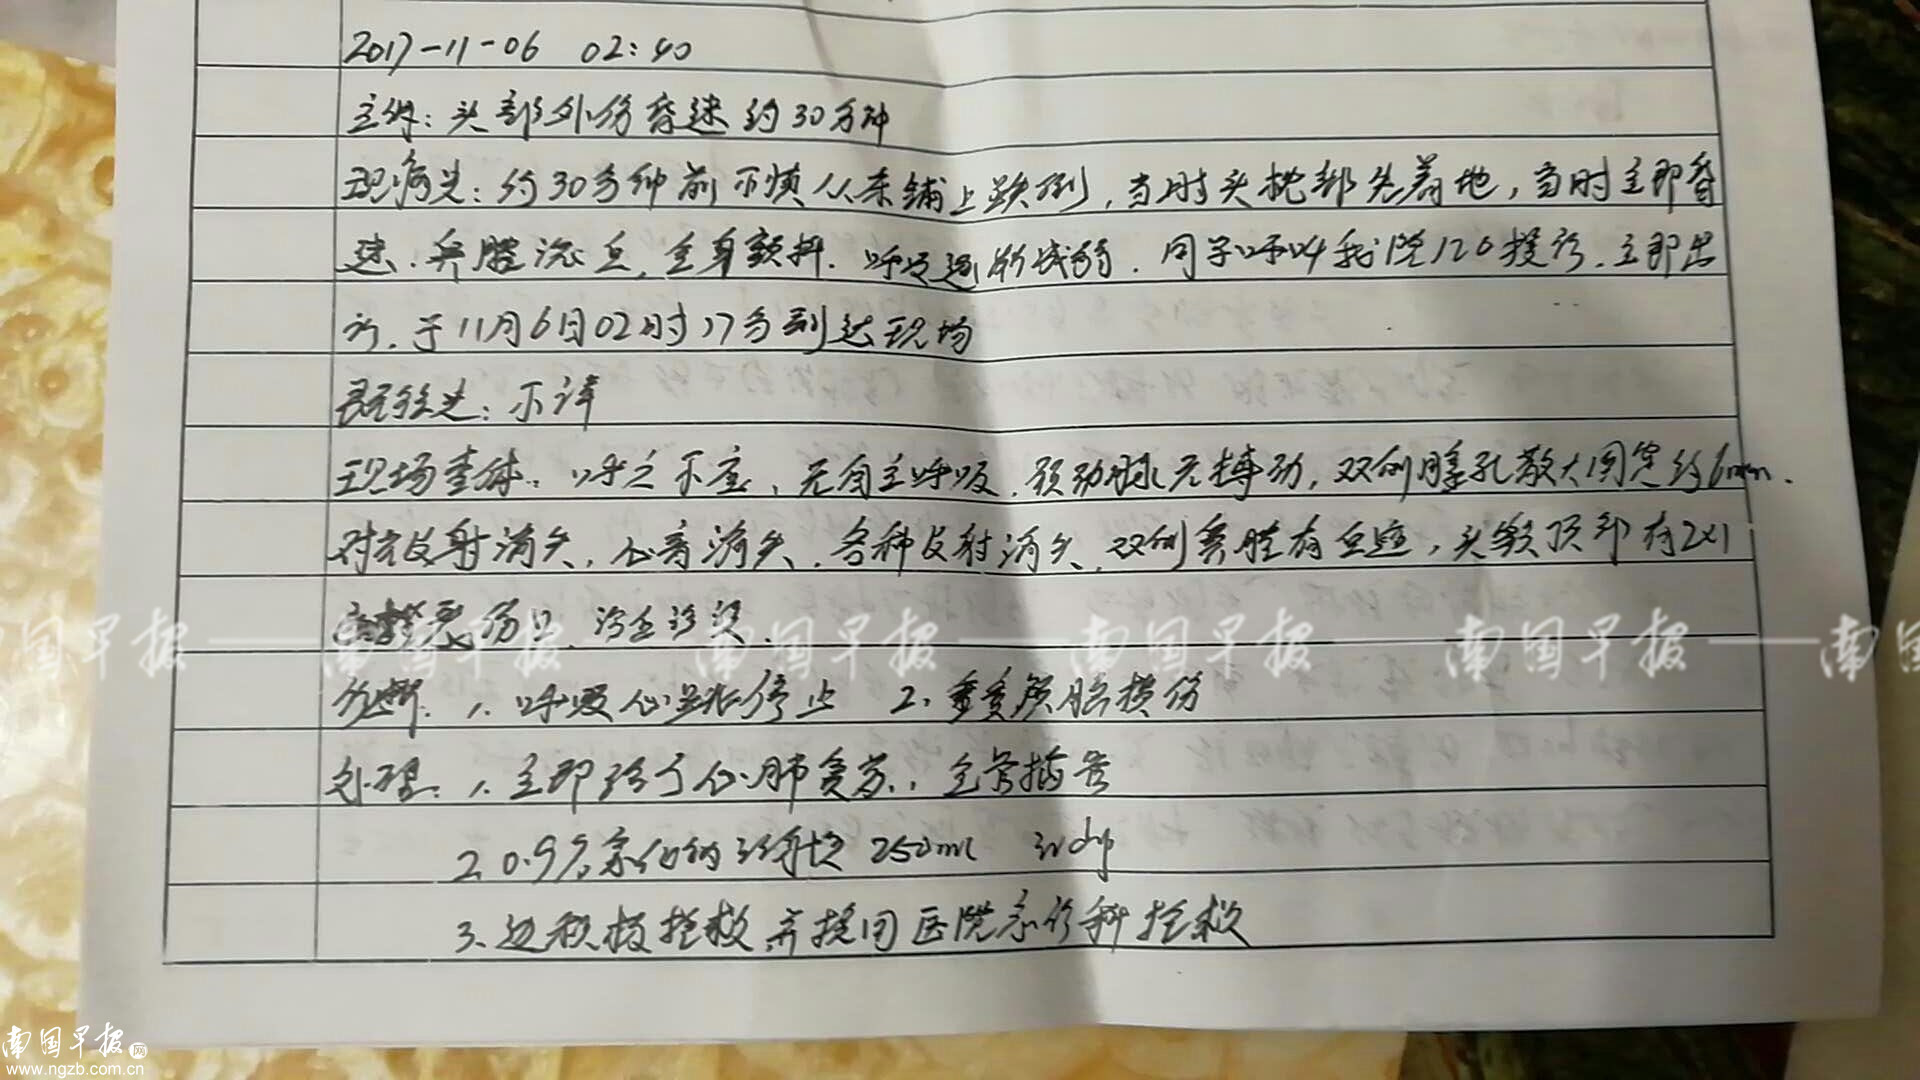 2017-11-06 02:40
主诉：头部外伤昏迷约30分钟
现病史：约30分钟前不慎从床铺上跌倒，当时头枕部先着地，当时立即昏
迷、鼻腔流血，全身颤抖，呼吸逐渐减弱，同学呼叫我院120接诊，立即出
诊，于11月6日02时17分到达现场
既往史：不详
现场查体：呼之不应，无自主呼吸，颈动脉无搏动，双侧瞳孔散大固定约6mm，
对光反射消失，心音消失，各种反射消失，双侧鼻腔有血迹，头额顶部有2×1
裂伤口
诊断：1、呼吸心跳停止 2、重度颅脑损伤
处理：1、立即给予心肺复苏，气管插管
2、0.9%氯化钠 250ml ivdrip
3、边积极抢救并接回医院急诊科抢救
南国早报 南国早报 南国早报 南国早报 南国早报 南国
南国早报网
www.ngzb.com.cn